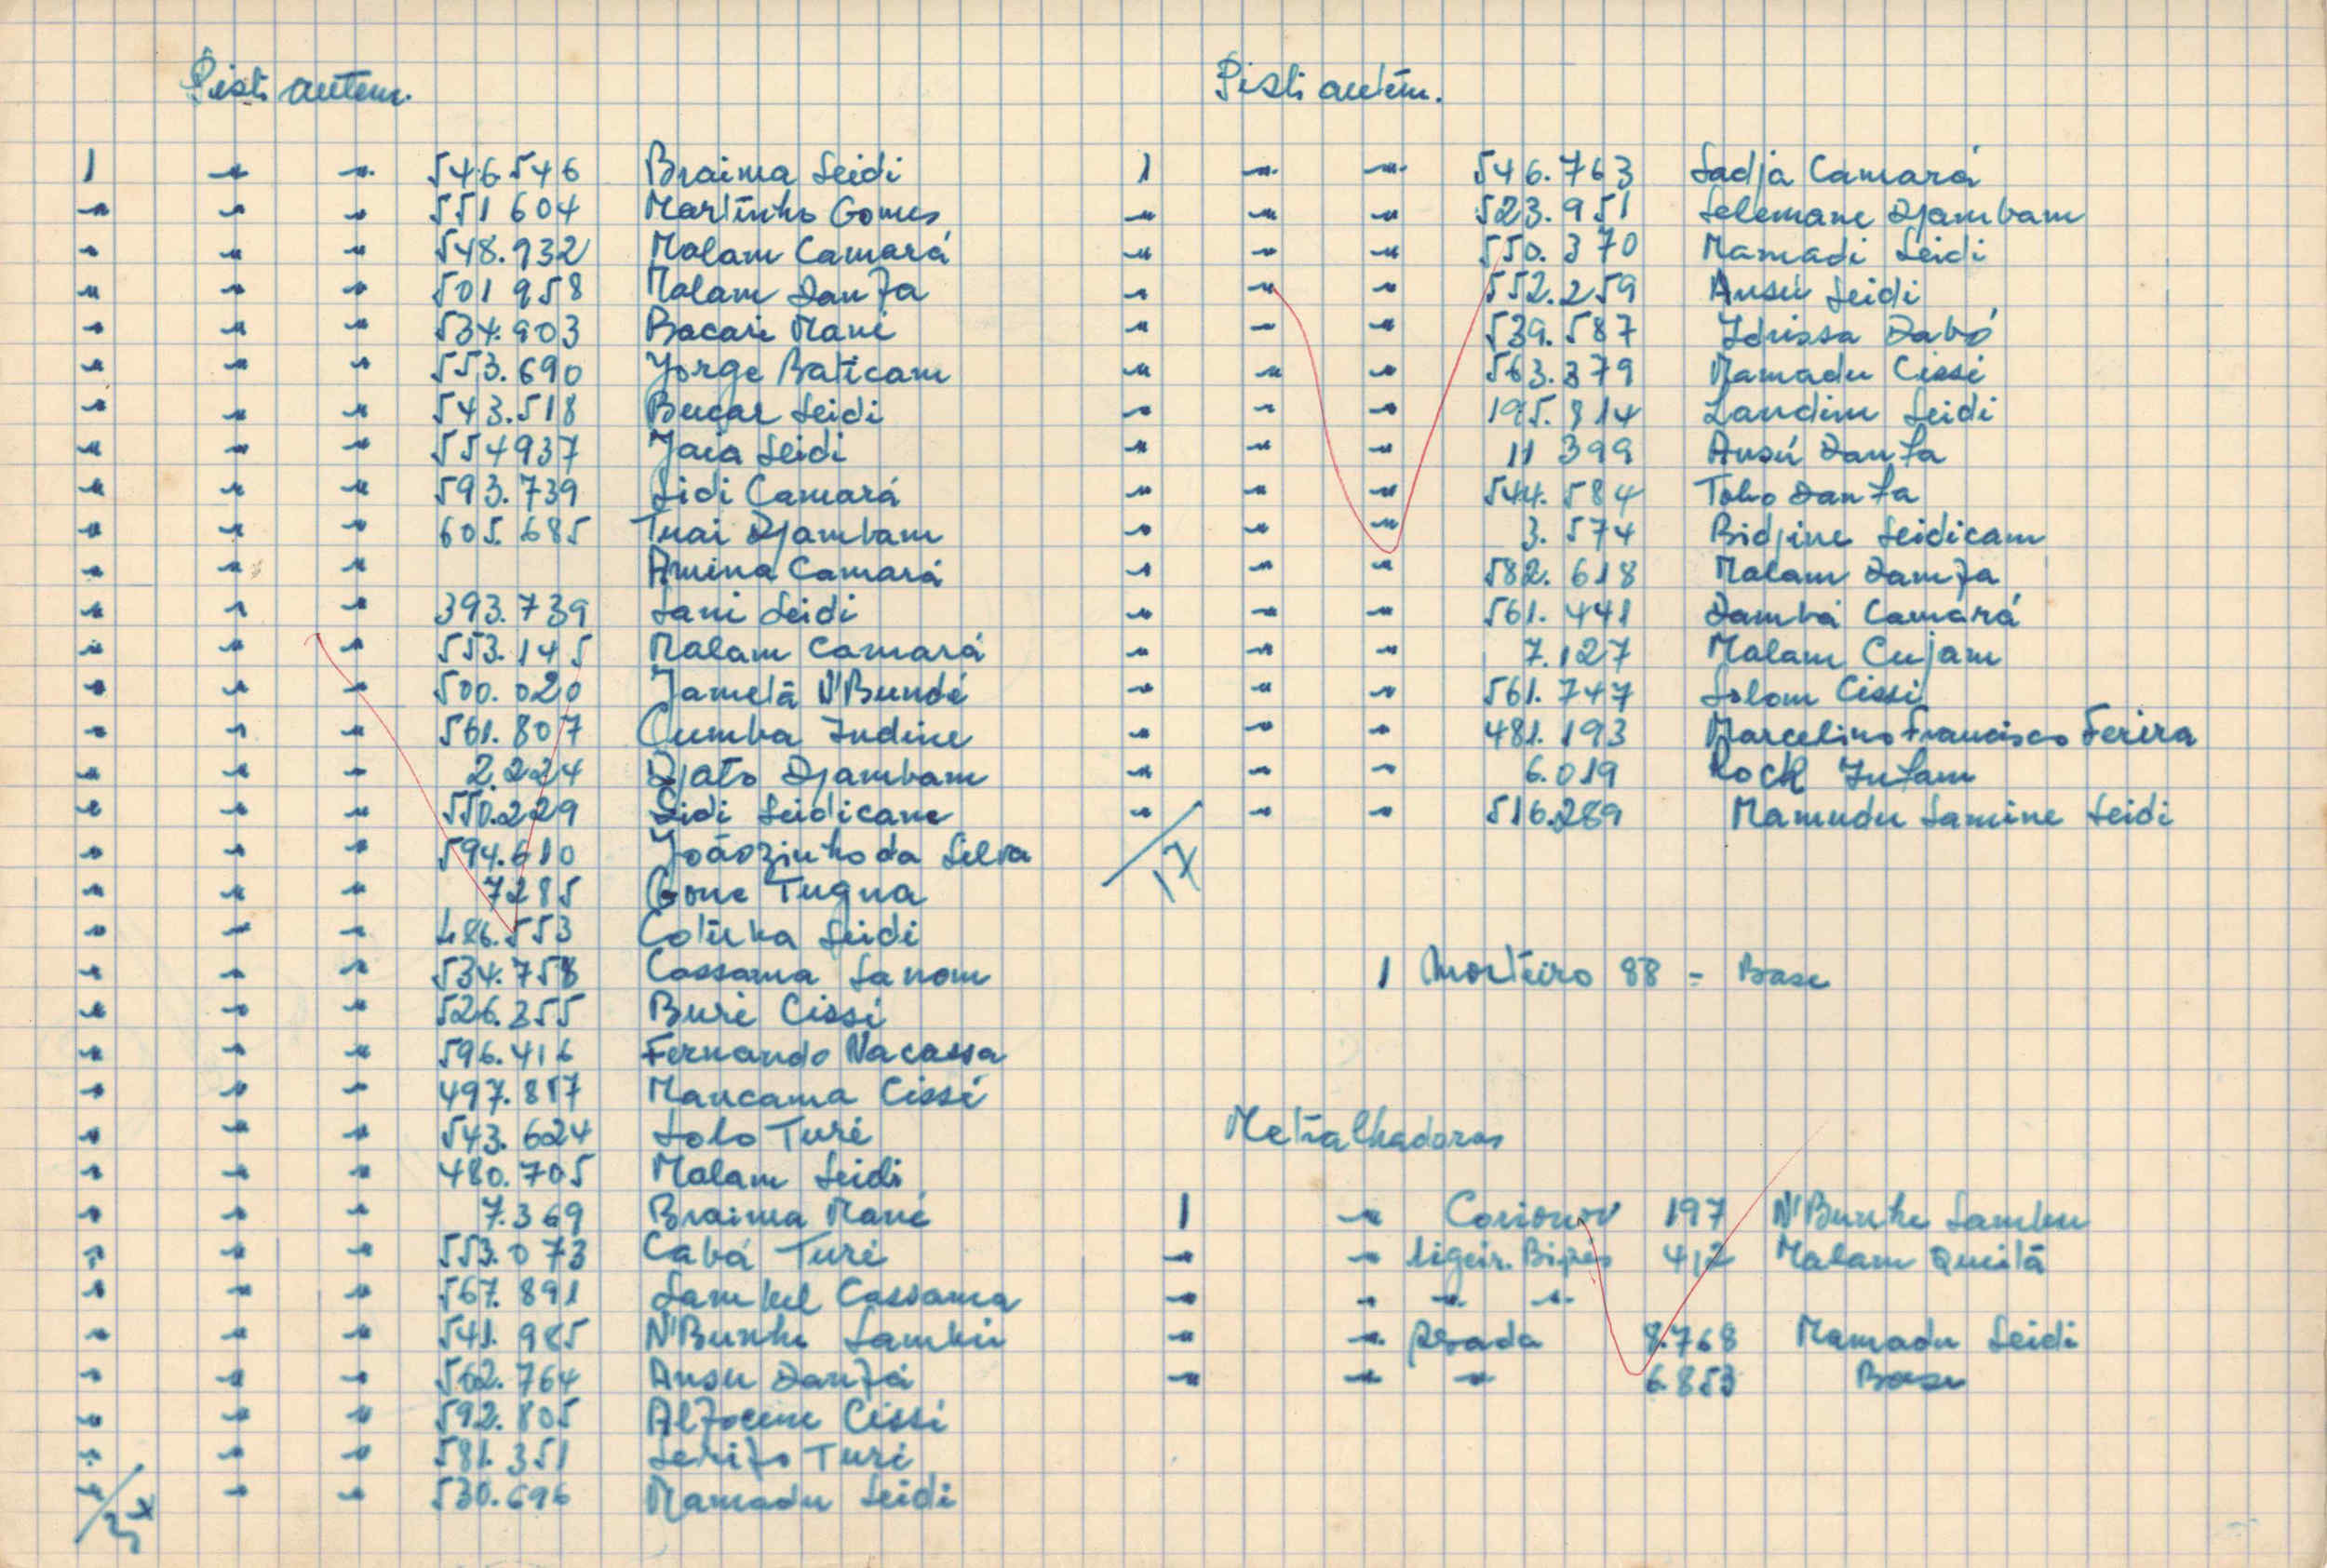 Pist. autom.
1 " " 546.546 Braima Seidi
" " " 551 604 Martinho Gomes
" " " 548.932 Malam Camará
" " " 501 958 Malam Danfa
" " " 534.903 Bacari Mané
" " " 553.690 Jorge Baticam
" " " 543.518 Bucar Seidi
" " " 554937 Jaia Seidi
" " " 593.739 Sidi Camará
" " " 605.685 Tuai Djambam
" " " Amina Camará
" " " 393.739 Sani Seidi
" " " 553.145 Malam Camará
" " " 500.020 Jametá N'Bundé
" " " 561.807 Cumba Indine
" " " 2.224 Djato Djambam
" " " 550.229 Sidi Seidicane
" " " 594.610 Joãozinho da Selva
" " " 7285 Gone Tugna
" " " 486.553 Seidi
" " " 534.758 Cassama Sanom
" " " 526.355 Buré Cissé
" " " 596.416 Fernando Nacassa
" " " 497.857 Mancama Cissé
" " " 543.624 Solo Turé
" " " 480.705 Malam Seidi
" " " 7.369 Braima Mané
" " " 553.073 Cabá Turé
" " " 567.891 Cassama
" " " 541.985 N'Bunhe Sambú
" " " 562.764 Ansu Danfá
" " " 592.805 Cissé
" " " 581.351 Serifo Turé
" " " 530.696 Mamadu Seidi
Pist. autom.
1 " " 546.763 Sadja Camará
" " " 523.951 Selemane Djambam
" " " 550.370 Mamadi Seidi
" " " 552.259 Ansú Seidi
" " " 539.587 Idrissa Dabó
" " " 563.379 Mamadu Cissé
" " " 195.814 Landim Seidi
" " " 11 399 Ansú Danfa
" " " 544.584 Tobo Danfa
" " " 3.574 Bidjine Seidicam
" " " 582.618 Malam Damfa
" " " 561.441 Dambá Camará
" " " 7.127 Malam Cujam
" " " 561.747 Solom Cissé
" " " 481.193 Marcelino Francisco Ferira
" " " 6.019 Rock Infam
" " " 516.289 Mamudu Lamine Seidi
17
1 Morteiro 88 = Base
Metralhadoras
1 " 197 N'Bunhe Sambu
" " ligeir. Bipés 412 Malam Queitá
" " " "
" " pesada 8.768 Mamadu Seidi
" " " 6.853 Base